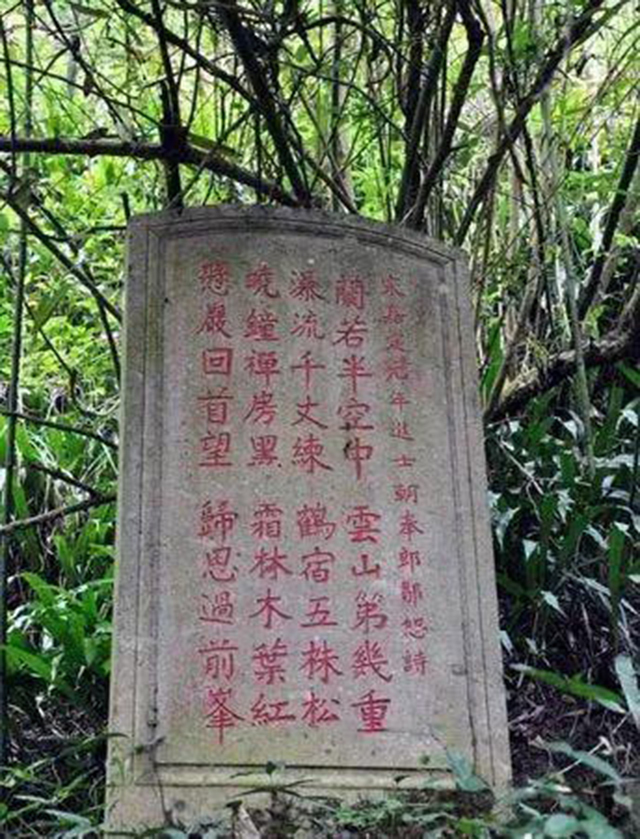 宋嘉定元年進士朝奉郎鄭恕詩
蘭若半空中 雲山第幾重
瀑流千丈練 鶴宿五株松
曉鐘禪房黑 霜林木葉紅
懸巖回首望 歸思過前峯